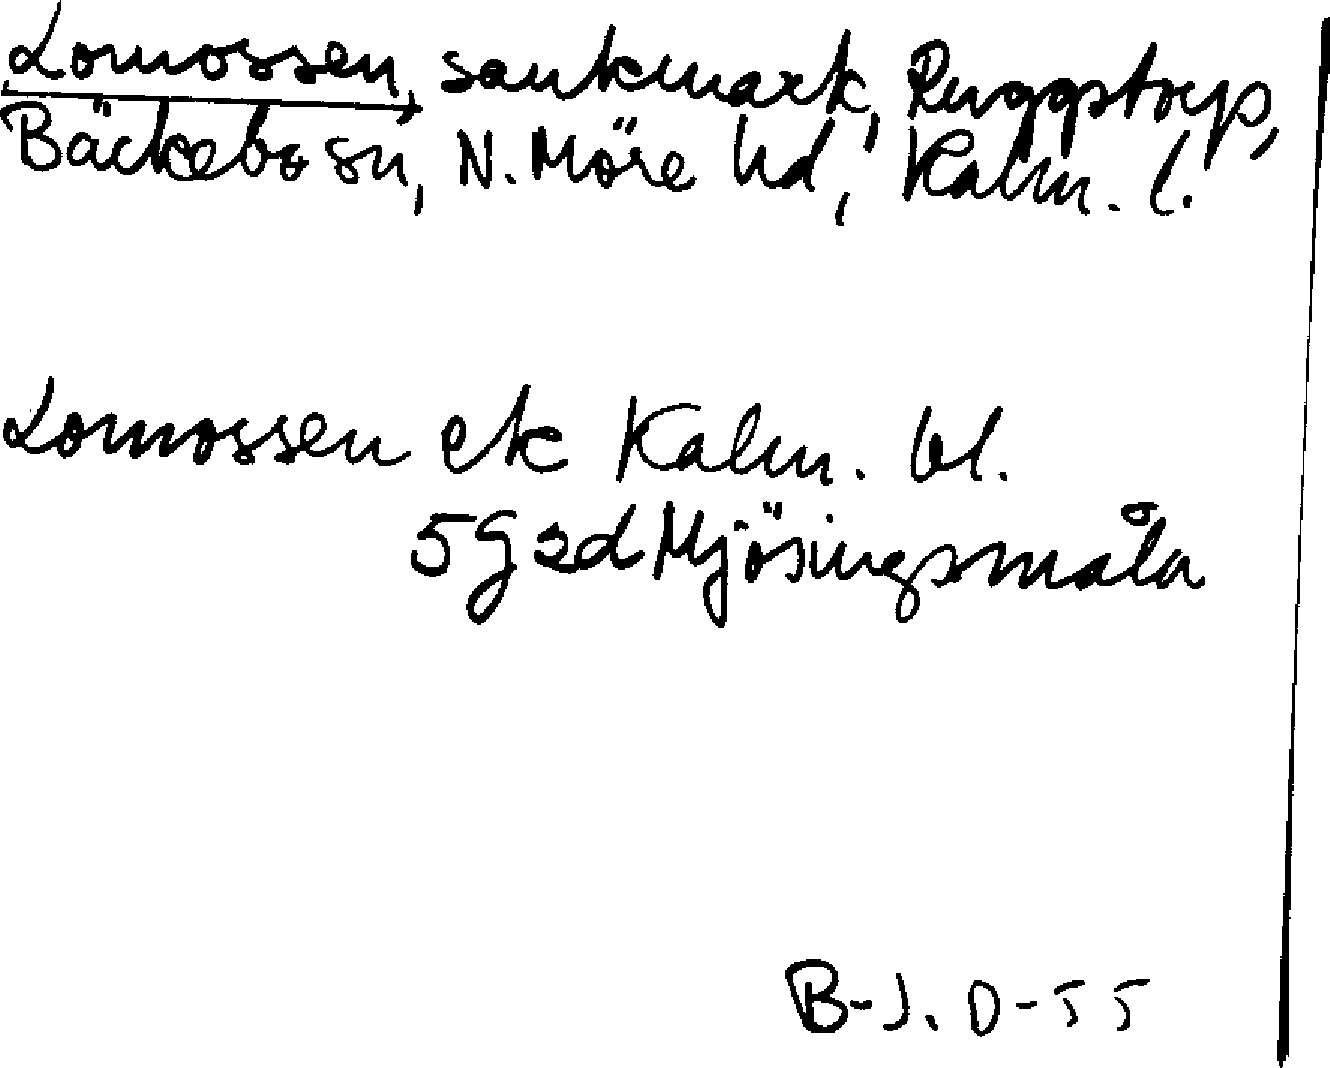 Lomossen, sankmark, Ruggstorp,
Bäckebo sn, N. Möre hd, Kalm. l.
Lomossen ek Kalm. bl.
5G 2d Mjösingsmåla
B-J. D-55